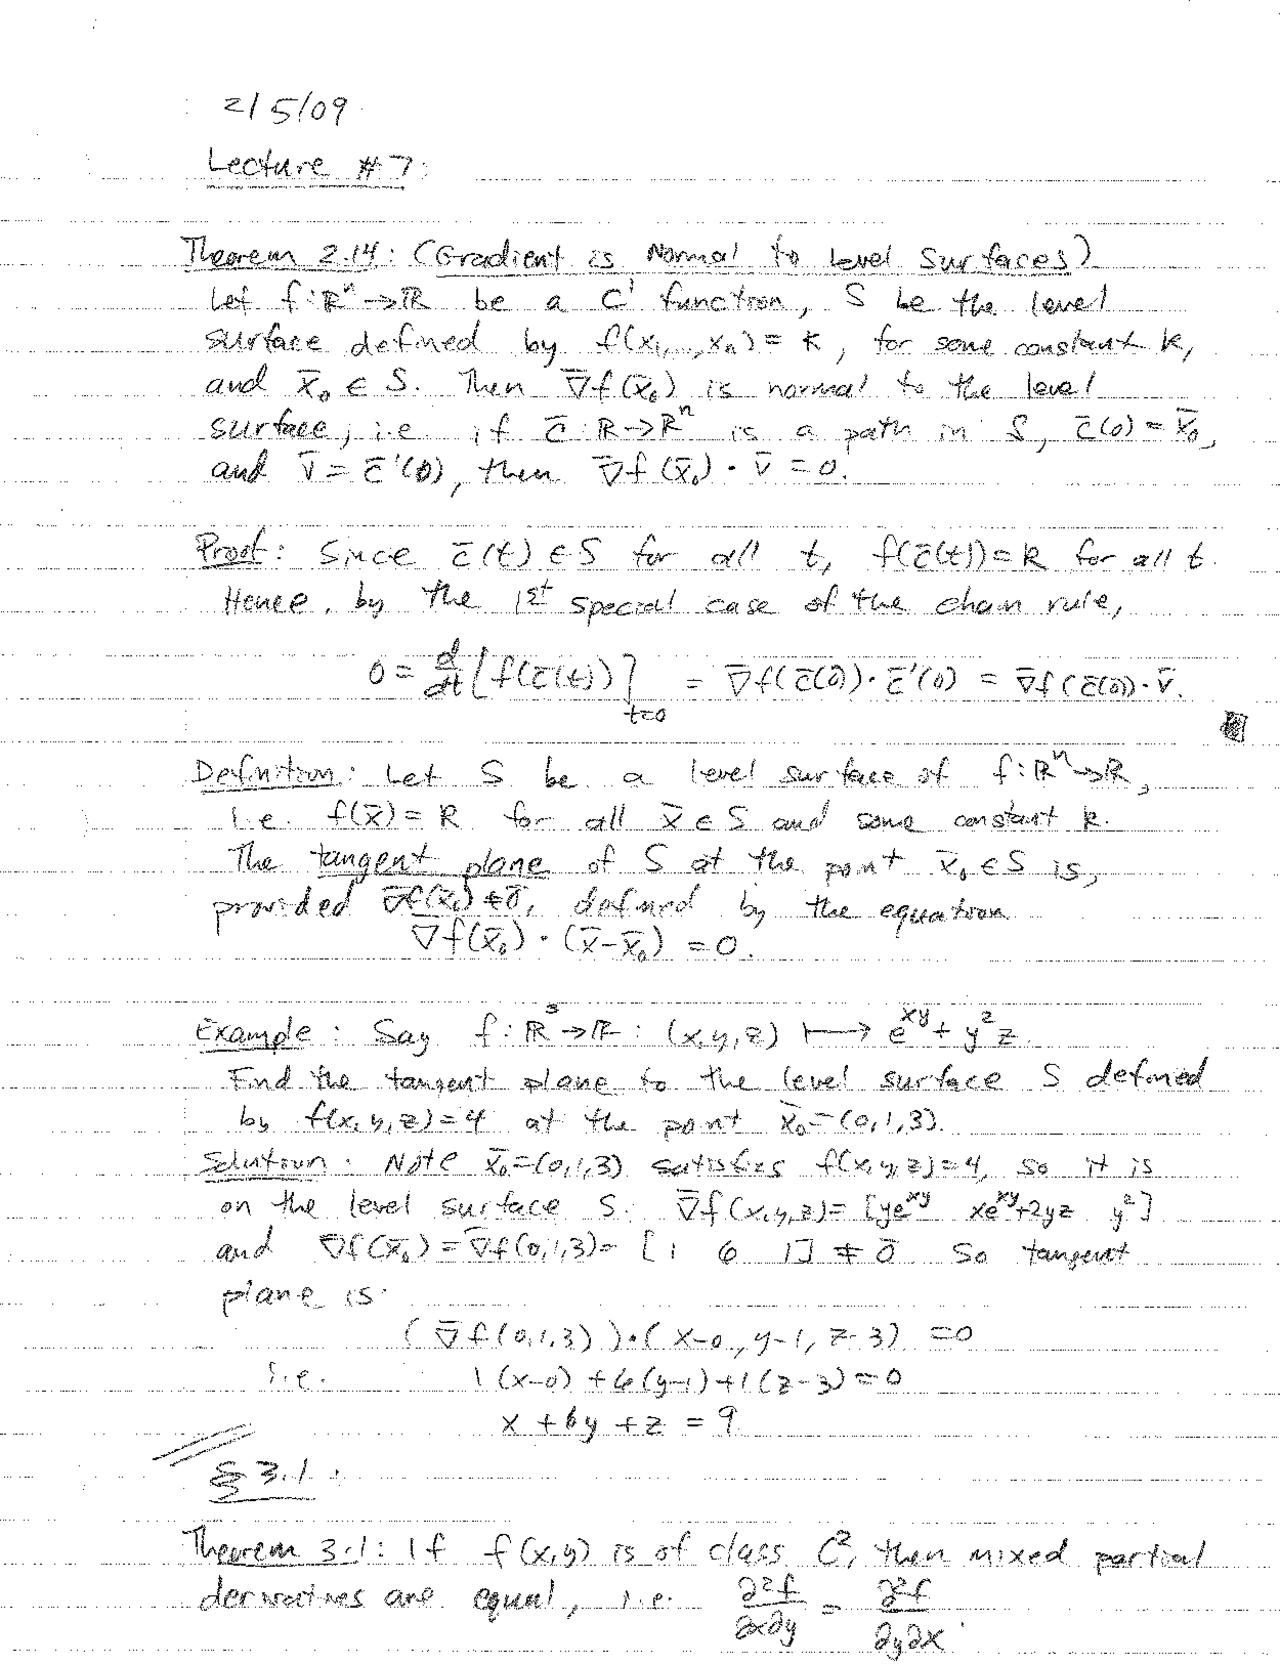 2/5/09
Lecture #7:
Theorem 2.14: (Gradient is Normal to Level Surfaces)
Let f:ℝⁿ→ℝ be a C¹ function, S be the level
surface defined by f(x₁,...,xₙ)=k, for some constant k,
and x̄₀ ∈ S. Then ∇̄f(x̄₀) is normal to the level
surface, i.e. if c̄:ℝ→ℝⁿ is a path in S, c̄(0)=x̄₀,
and v̄=c̄'(0), then ∇̄f(x̄₀)·v̄=0.
Proof: Since c̄(t)∈S for all t, f(c̄(t))=k for all t.
Hence, by the 1st special case of the chain rule,
0 = d/dt [f(c̄(t))]|t=0 = ∇̄f(c̄(0))·c̄'(0) = ∇̄f(c̄(0))·v̄.
Definition: Let S be a level surface of f:ℝⁿ→ℝ,
i.e. f(x̄)=k for all x̄∈S and some constant k.
The tangent plane of S at the point x̄₀∈S is,
provided ∇̄f(x̄₀)≠0̄, defined by the equation
∇̄f(x̄₀)·(x̄-x̄₀)=0.
Example: Say f:ℝ³→ℝ:(x,y,z) ⟼ e^{xy}+y²z.
Find the tangent plane to the level surface S defined
by f(x,y,z)=4 at the point x̄₀=(0,1,3).
Solution: Note x̄₀=(0,1,3) satisfies f(x,y,z)=4, so it is
on the level surface S. ∇̄f(x,y,z)=[ye^{xy} xe^{xy}+2yz y²]
and ∇̄f(x̄₀)=∇̄f(0,1,3)=[1 6 1]≠0̄ So tangent
plane is:
(∇̄f(0,1,3))·(x-0, y-1, z-3)=0
i.e. 1(x-0)+6(y-1)+1(z-3)=0
x+6y+z=9
§3.1:
Theorem 3.1: If f(x,y) is of class C², then mixed partial
derivatives are equal, i.e. ∂²f/∂x∂y = ∂²f/∂y∂x.